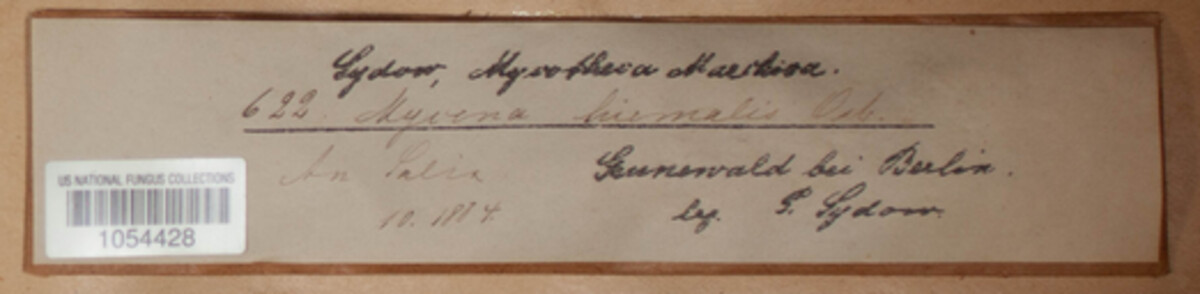 Sydow, Mycotheca Marchica.
622. Mycena hiemalis Osb.
An Salix
10. 1884.
Grunewald bei Berlin.
leg. P. Sydow.
US NATIONAL FUNGUS COLLECTIONS
1054428